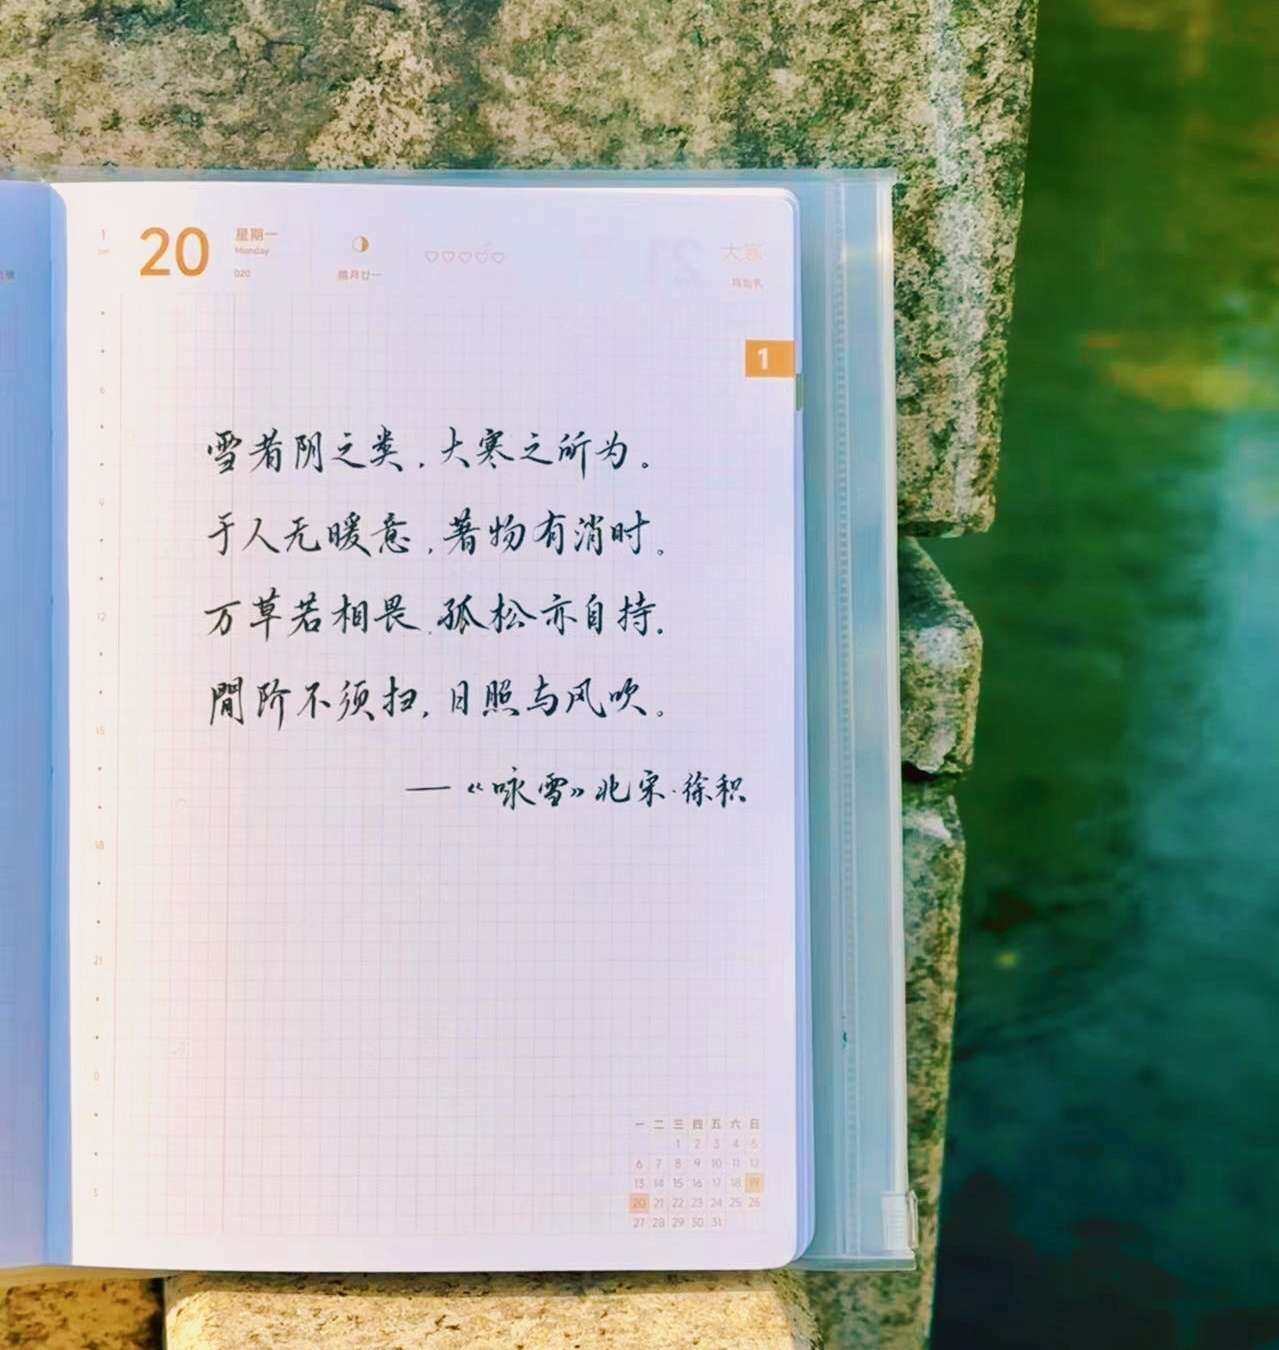 1
20
星期一
Monday
020
腊月廿一
大寒
1
6
9
12
15
18
21
0
3
雪者阴之类，大寒之所为。
于人无暖意，著物有消时。
万草若相畏，孤松亦自持。
閒阶不须扫，日照与风吹。
—《咏雪》北宋·徐积
一 二 三 四 五 六 日
1 2 3 4 5
6 7 8 9 10 11 12
13 14 15 16 17 18 19
20 21 22 23 24 25 26
27 28 29 30 31